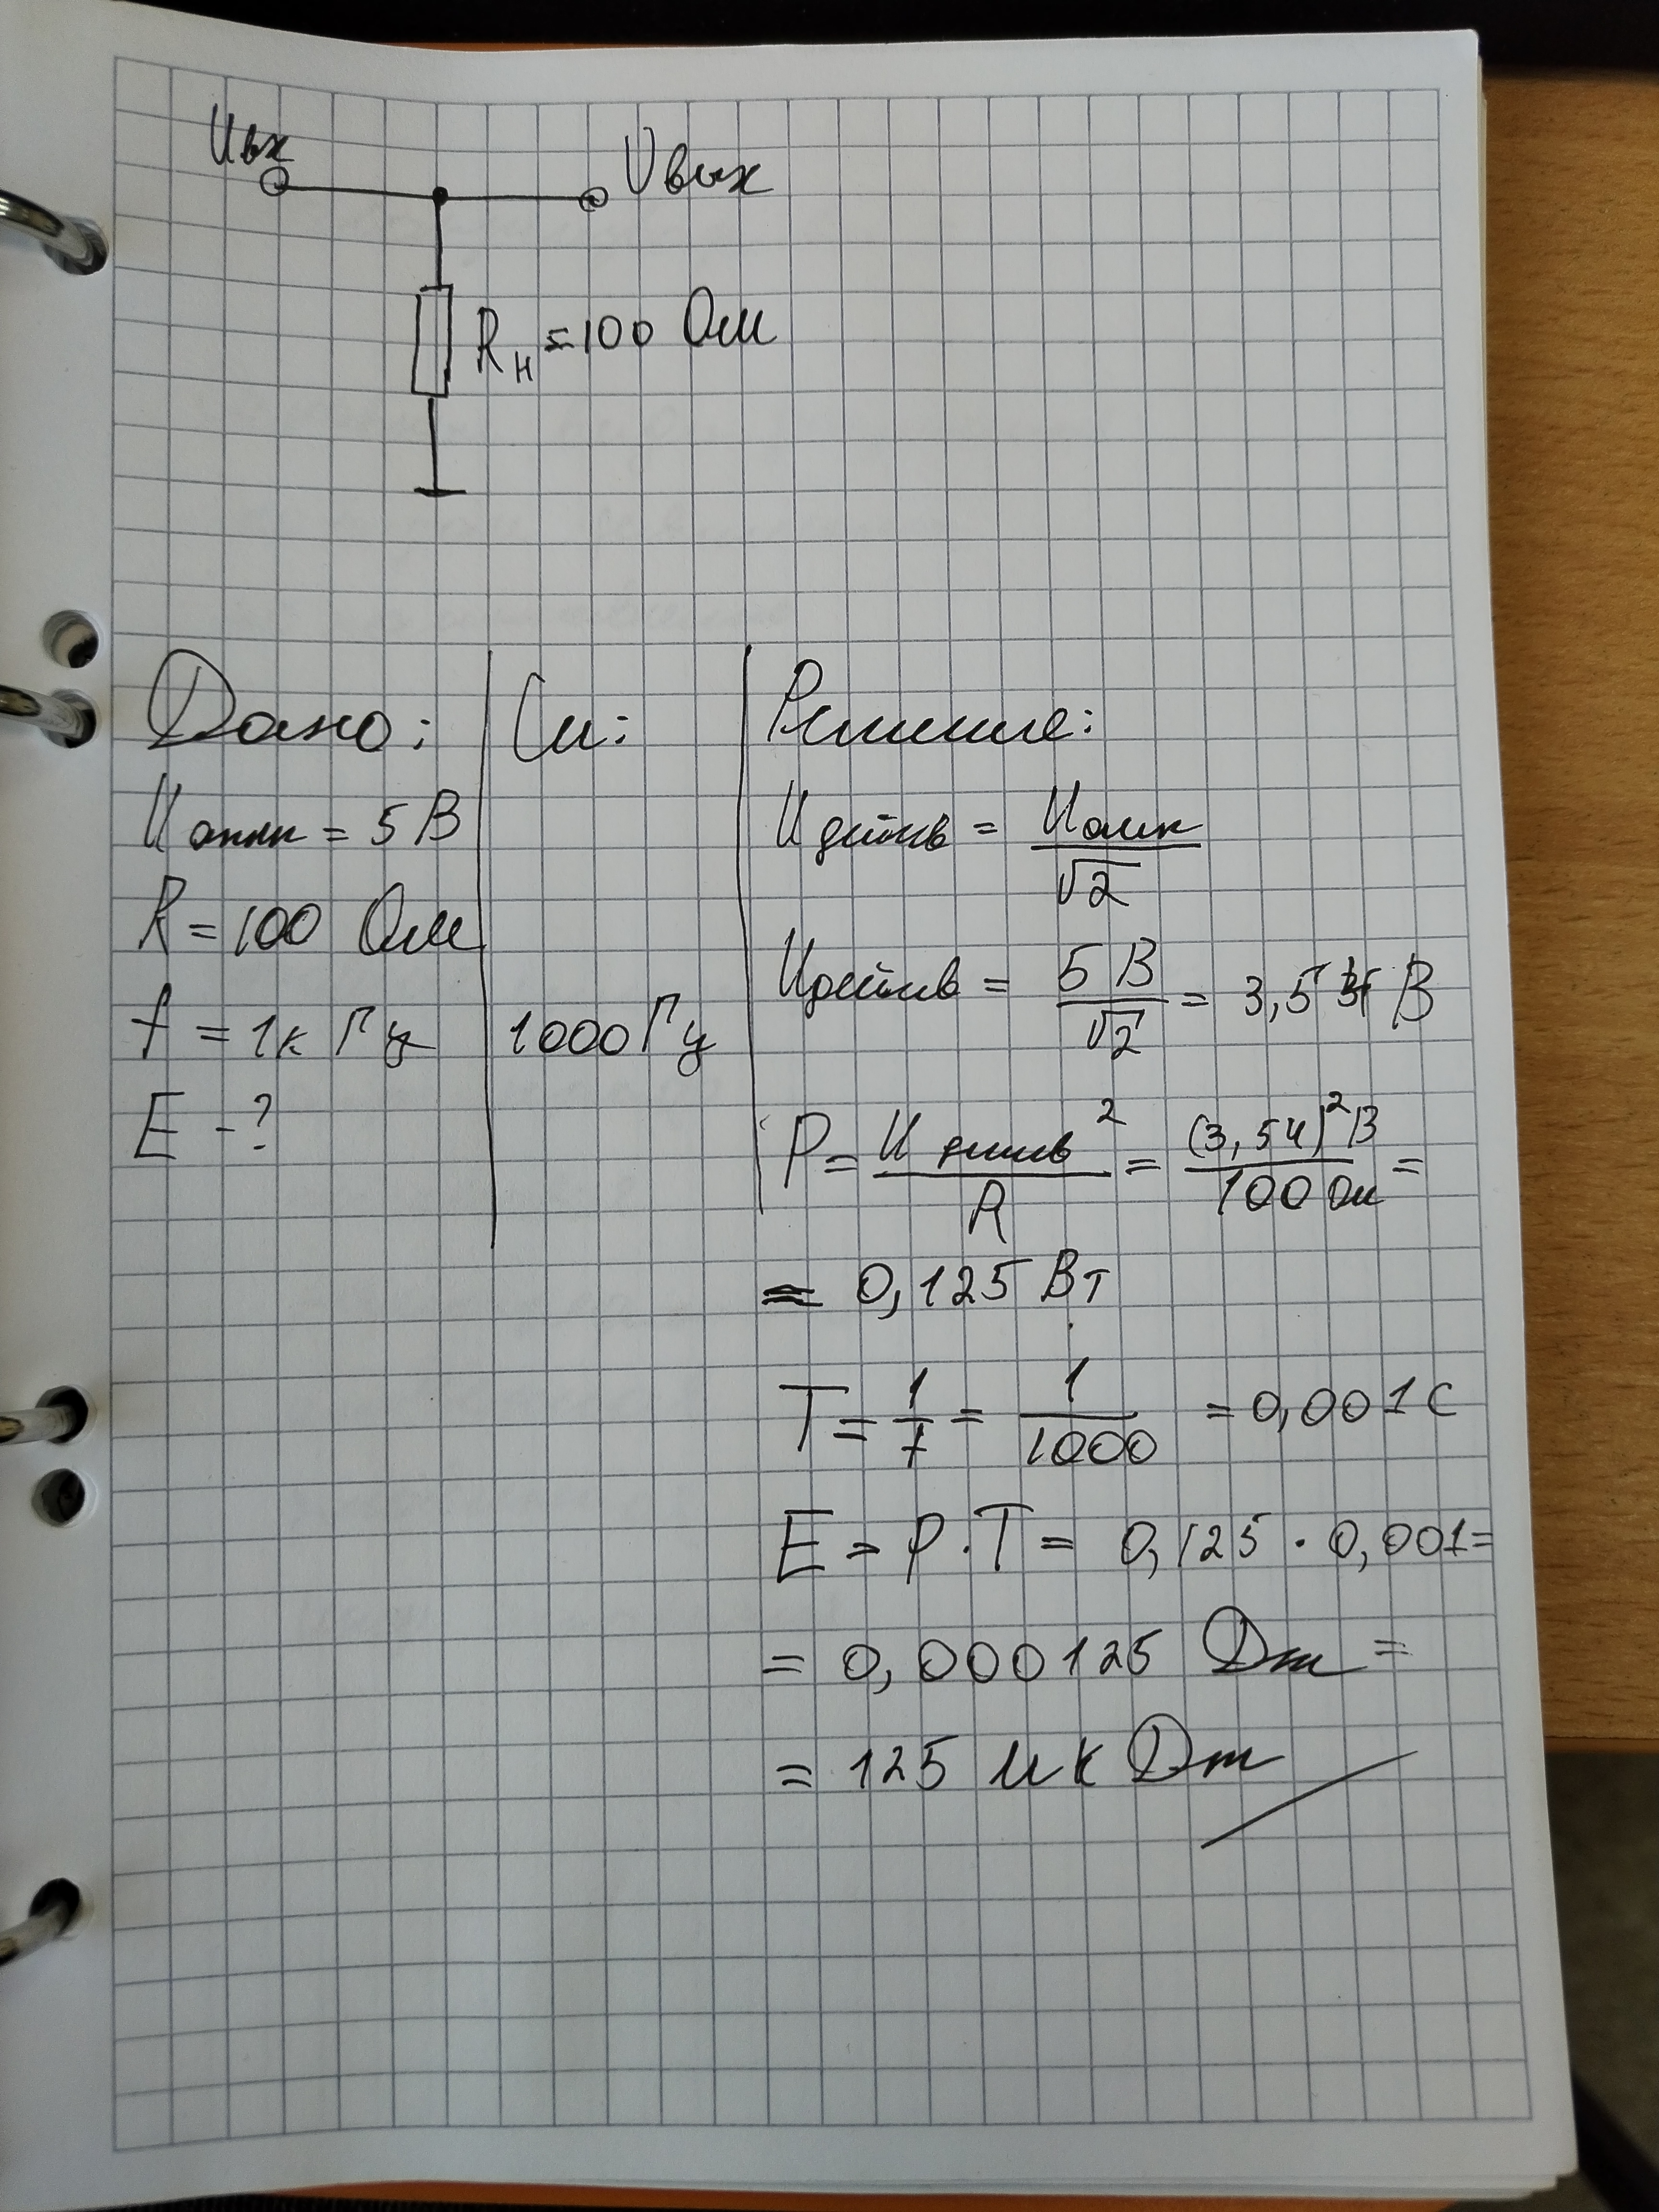 Uвх
Uвых
Rн = 100 Ом
Дано:
Uампл = 5 В
R = 100 Ом
f = 1к Гц
E - ?
Си:
1000 Гц
Решение:
Uдейств = Uампл / √2
Uдейств = 5 В / √2 = 3,5 В
P = Uдейств² / R = (3,54)² В / 100 Ом =
= 0,125 Вт
T = 1/f = 1/1000 = 0,001 с
E = P · T = 0,125 · 0,001 =
= 0,000125 Дж =
= 125 мк Дж